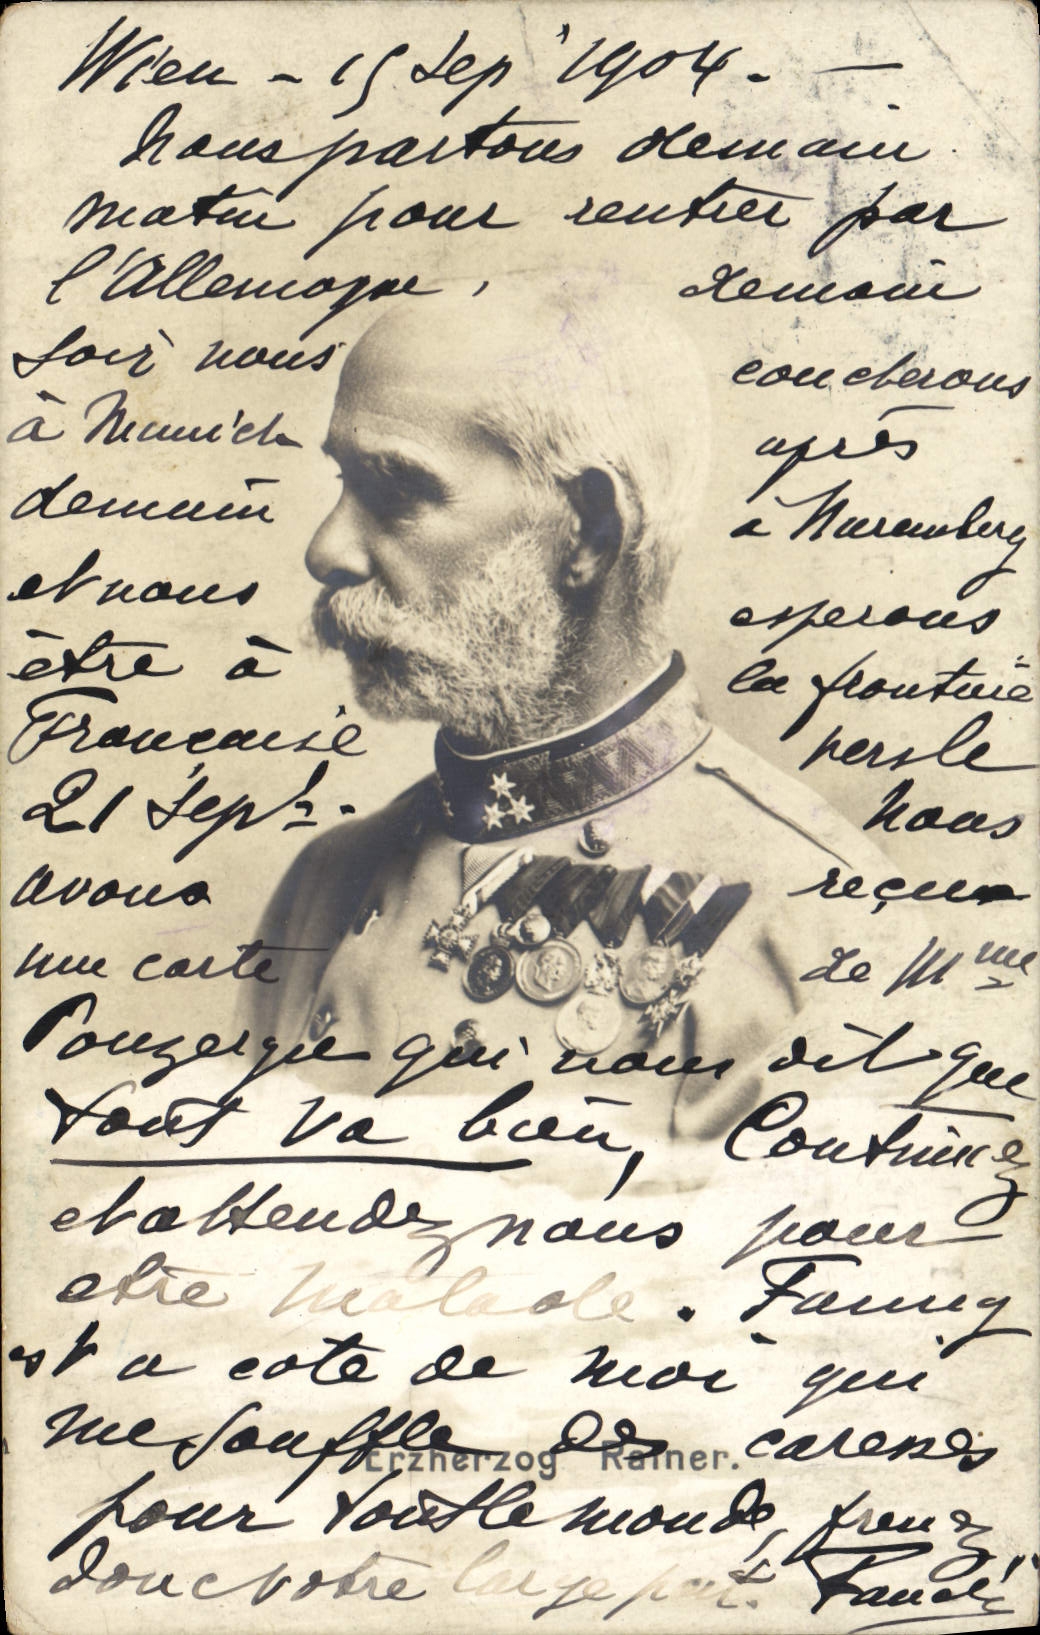 Wien - 15 Sep 1904. —
Nous partons demain
matin pour rentrer par
l'Allemagne, demain
soir nous coucherons
à Munich après
demain à Nuremberg
et nous esperons
être à la frontière
Française vers le
21 Sept. Nous
avons reçu
une carte de Mme
Pouzergue qui nous dit que
tout va bien, Continuez
et attendez nous pour
etre malade. Fanny
est a coté de moi qui
me souffle des caresses
pour tout le monde, prenez
donc votre large part.
Erzherzog Rainer.